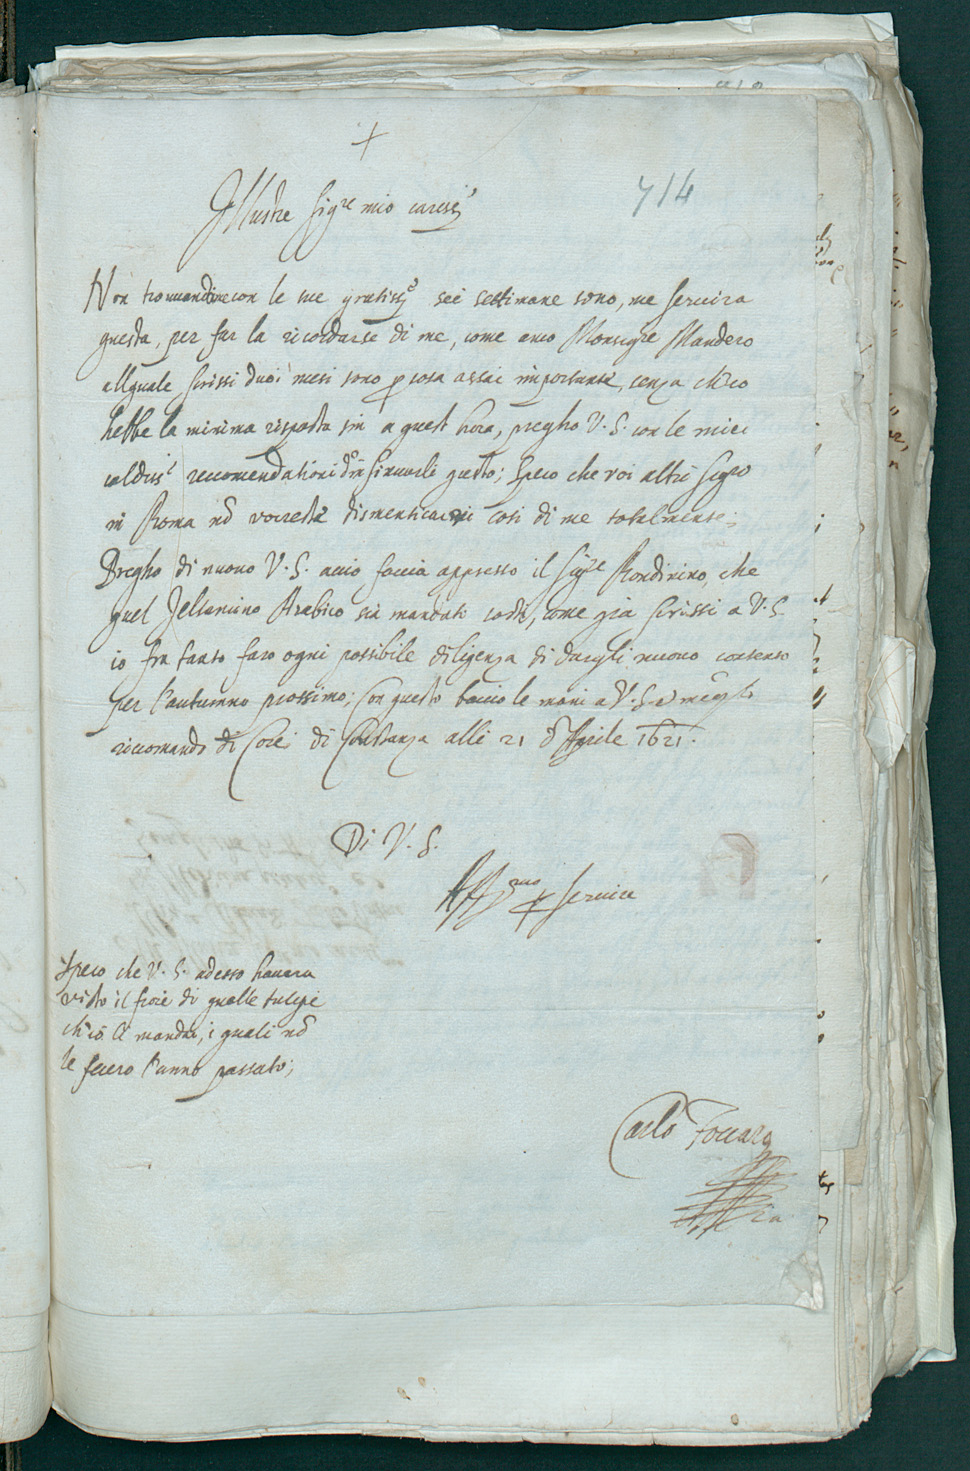 +
714
Illustre Sigre mio cariss.
Non trovandime con le sue gratiss. sei settimane sono, me servira
questa, per far la ricordarse di me, come anco Monsigre Mandero
allquale scrissi duoi mesi sono per cosa assai importante, senza ch'io
hebbe la minima risposta sin a quest hora, pregho V. S. con le miei
caldiss. recomendationi insinuarli questo; spero che voi altri Sigri
in Roma nō vorreste dismenticarvi cosi di me totalmente;
Pregho di nuovo V. S. accio faccia appresso il Sigre Rondinino, che
quel Jelsamino Arabico sia mandati costi, come gia scrissi a V. S.
io fra tanto faro ogni possibile diligenza di dargli nuovo consenso
per l'autunno prossimo; Con questo baccio le mani a V. S. e
riccomando di Core; di Constanza alli 21 d'Aprile 1621.
Di V. S.
Affmo per servire
Spero che V. S. adesso havera
visto il fiore di quelle tulipe
ch'io li mandai, i quali nō
le fecero l'anno passato;
Carlo Foccaro